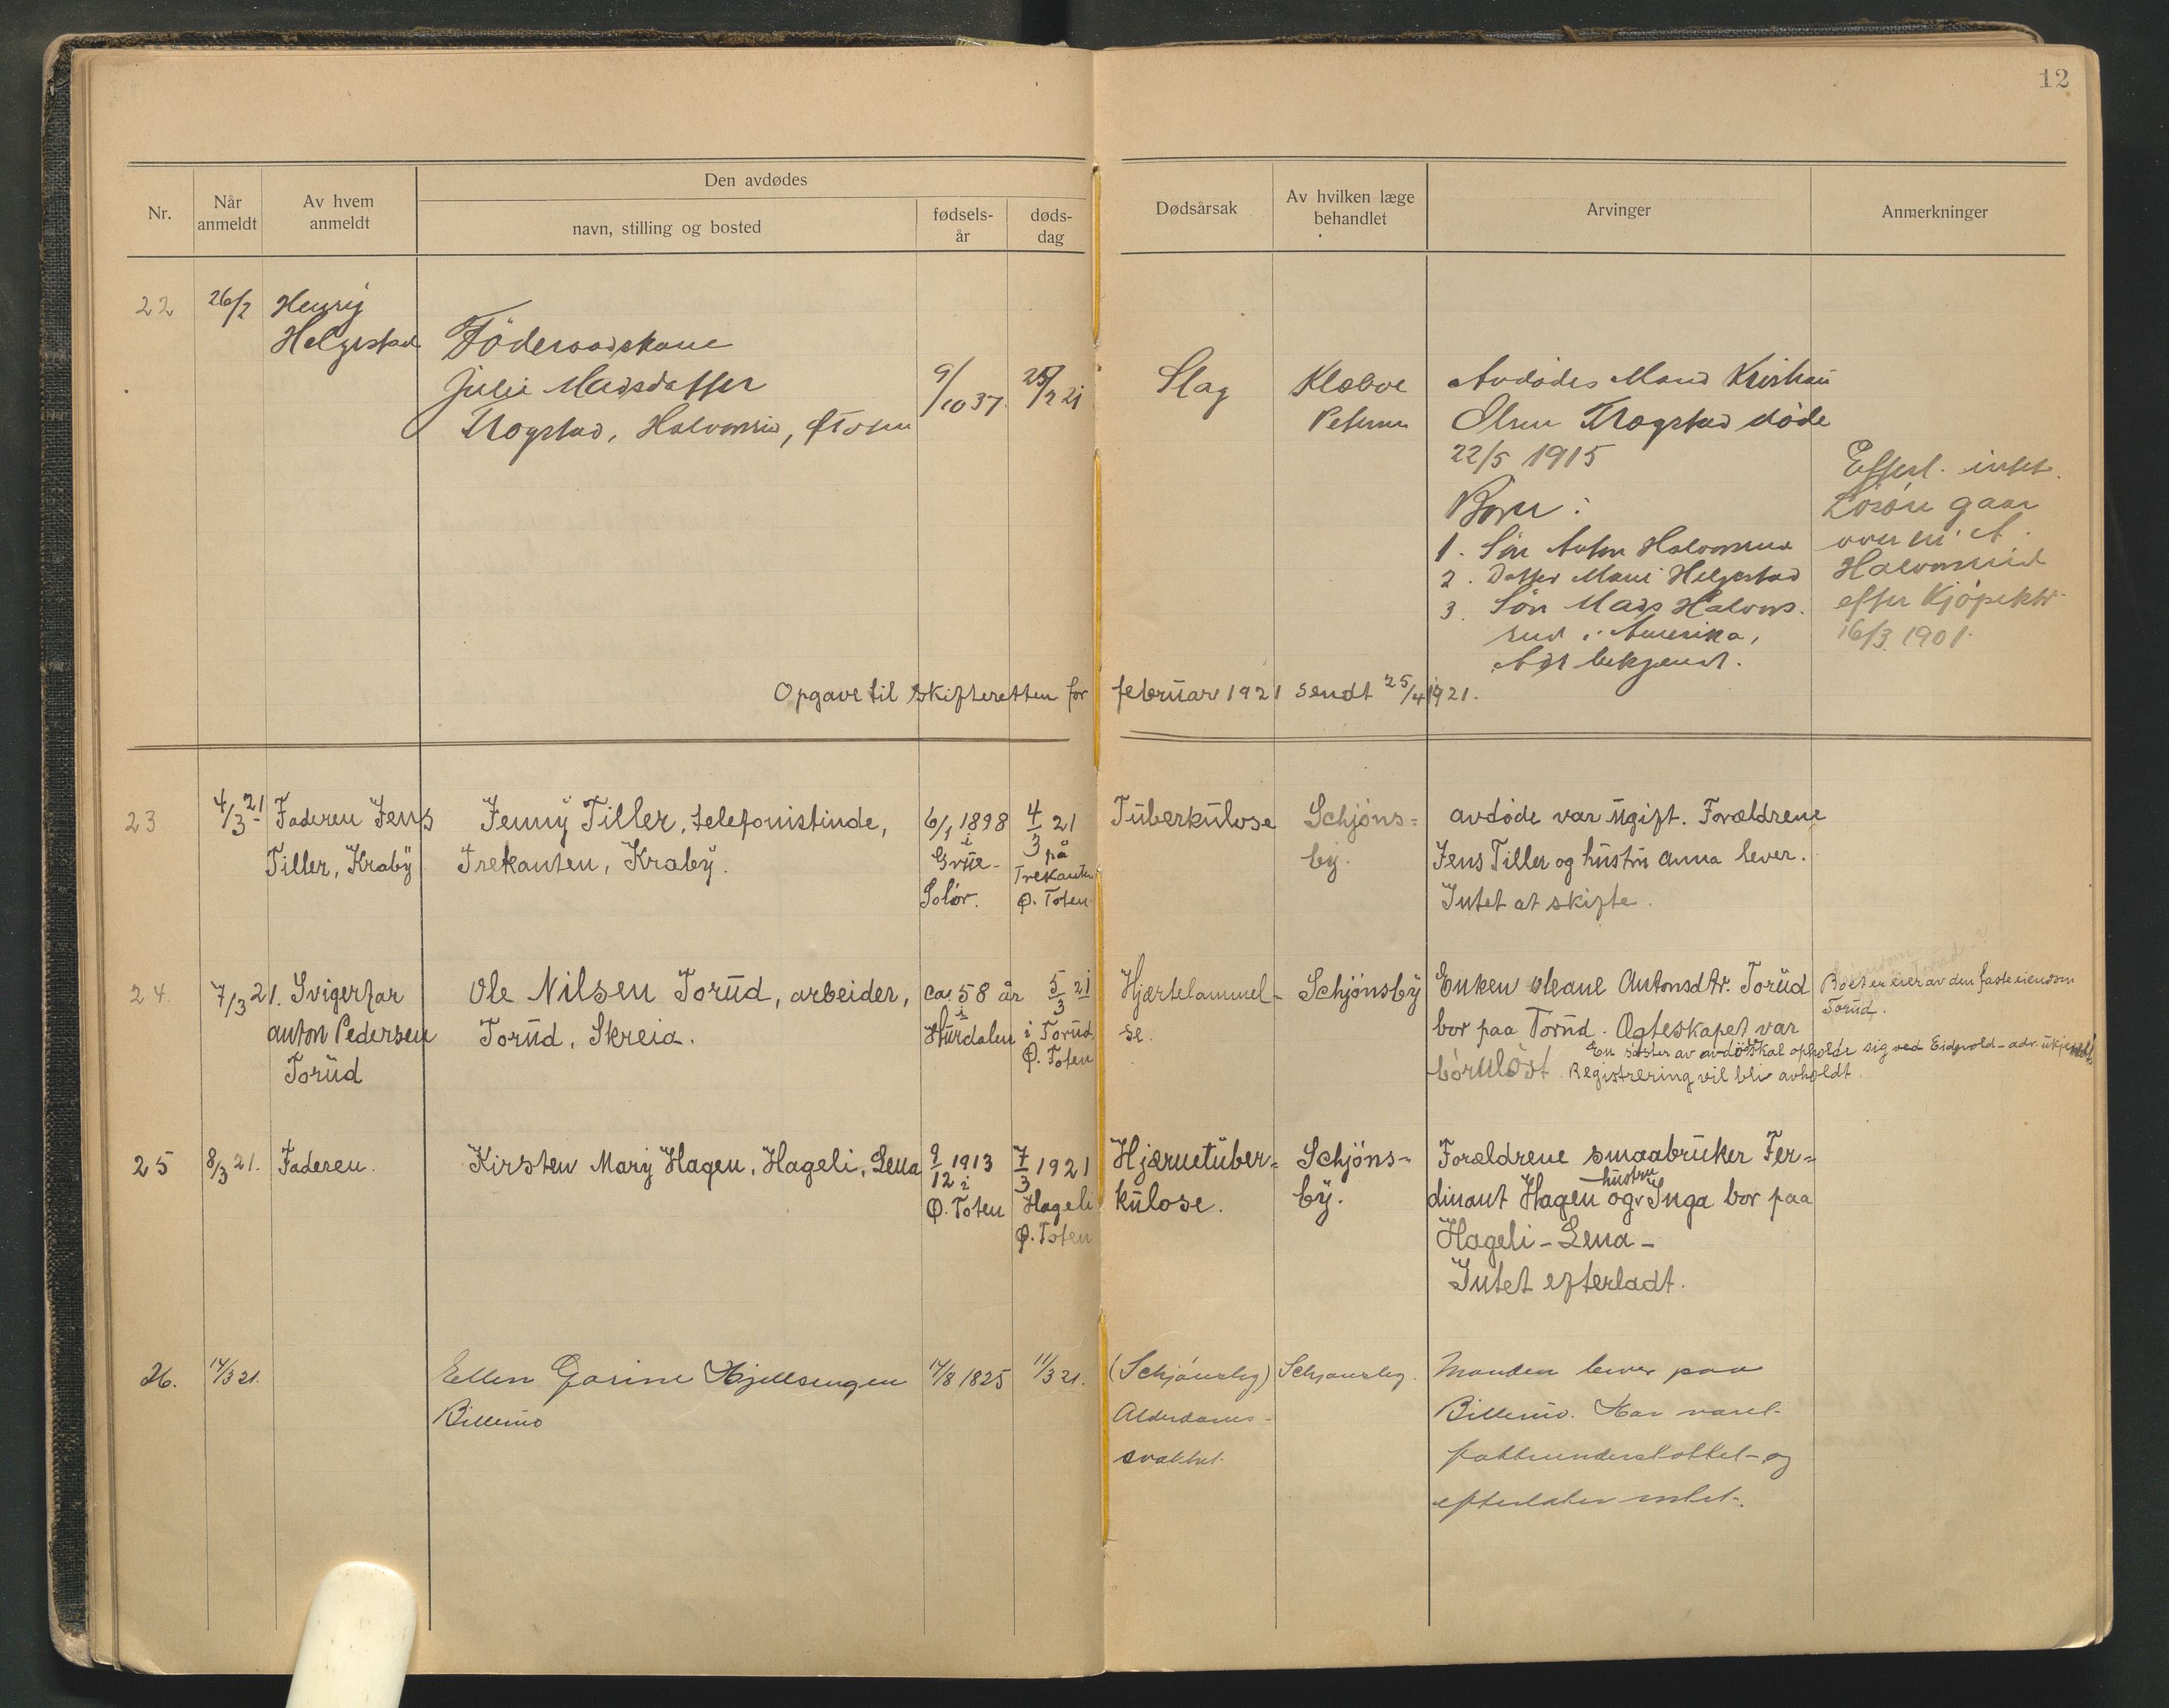 12
Nr.
Når anmeldt
Av hvem anmeldt
Den avdødes
navn, stilling og bosted
fødsels-år
døds-dag
Dødsårsak
Av hvilken læge behandlet
Arvinger
Anmerkninger
22
26/2
Henrij
Helgestad
Föderaadskone
Julie Madsdatter
Trogstad, Halvorsrud, ØToten
9/10 37.
25/2 21
Slag
Klæboe
Petersen
Avdödes Mand Kristian
Olsen Trogstad döde
22/5 1915
Börn :
1. Sön Anton Halvorsrud
2. Datter Mari Helgestad
3. Sön Mads Halvors.
rud i Amerika,
Adr bekjendt.
Efterl. intet.
Lösöre gaar
over til A.
Halvorsrud
efter Kjöpektr.
16/3 1901.
Opgave til skifteretten for februar 1921 sendt 25/4 1921.
23
4/3 21
Faderen Jens
Tiller, Kraby
Jenny Tiller, telefonistinde,
Trekanten, Kraby.
6/1 1898
i
Grue-
Solör.
4/3 21
på
Trekanten
Ø. Toten
Tuberkulose
Schjöns-
by.
avdöde var ugift. Forældrene
Jens Tiller og hustru Anna lever.
Intet at skifte.
24.
7/3 21.
Svigerfar
Anton Pedersen
Torud
Ole Nilsen Torud, arbeider,
Torud, Skreia.
ca. 58 år
i
Hurdalen
5/3 21
i Torud,
Ø. Toten
Hjertelammel-
se.
Schjönsby
Enken Oleane Antonsdtr. Torud
bor paa Torud. Ægteskapet var
börnlöst.
En söster av avdöde skal opholde sig ved Eidsvold - adr. ukjendt.
Registrering vil bli avholdt.
Boet er eier av den faste eiendom
Torud.
25
8/3 21.
Faderen.
Kirsten Mary Hagen, Hageli, Lena
9/12 1913
i
Ø. Toten
7/3 1921
Hageli
Ø. Toten
Hjernetuber-
kulose.
Schjöns-
by.
Forældrene smaabruker Fer-
dinant Hagen og hustru Inga bor paa
Hageli - Lena -
Intet efterladt.
26.
14/3 21.
Ellen Garine Kjellsengen
Billerud
14/8 1825
11/3 21.
(Schjønsby)
Alderdoms-
svakhet
Schjønsby.
Manden lever paa
Billerud. Har været
fattigunderstøttet - og
efterlater intet.